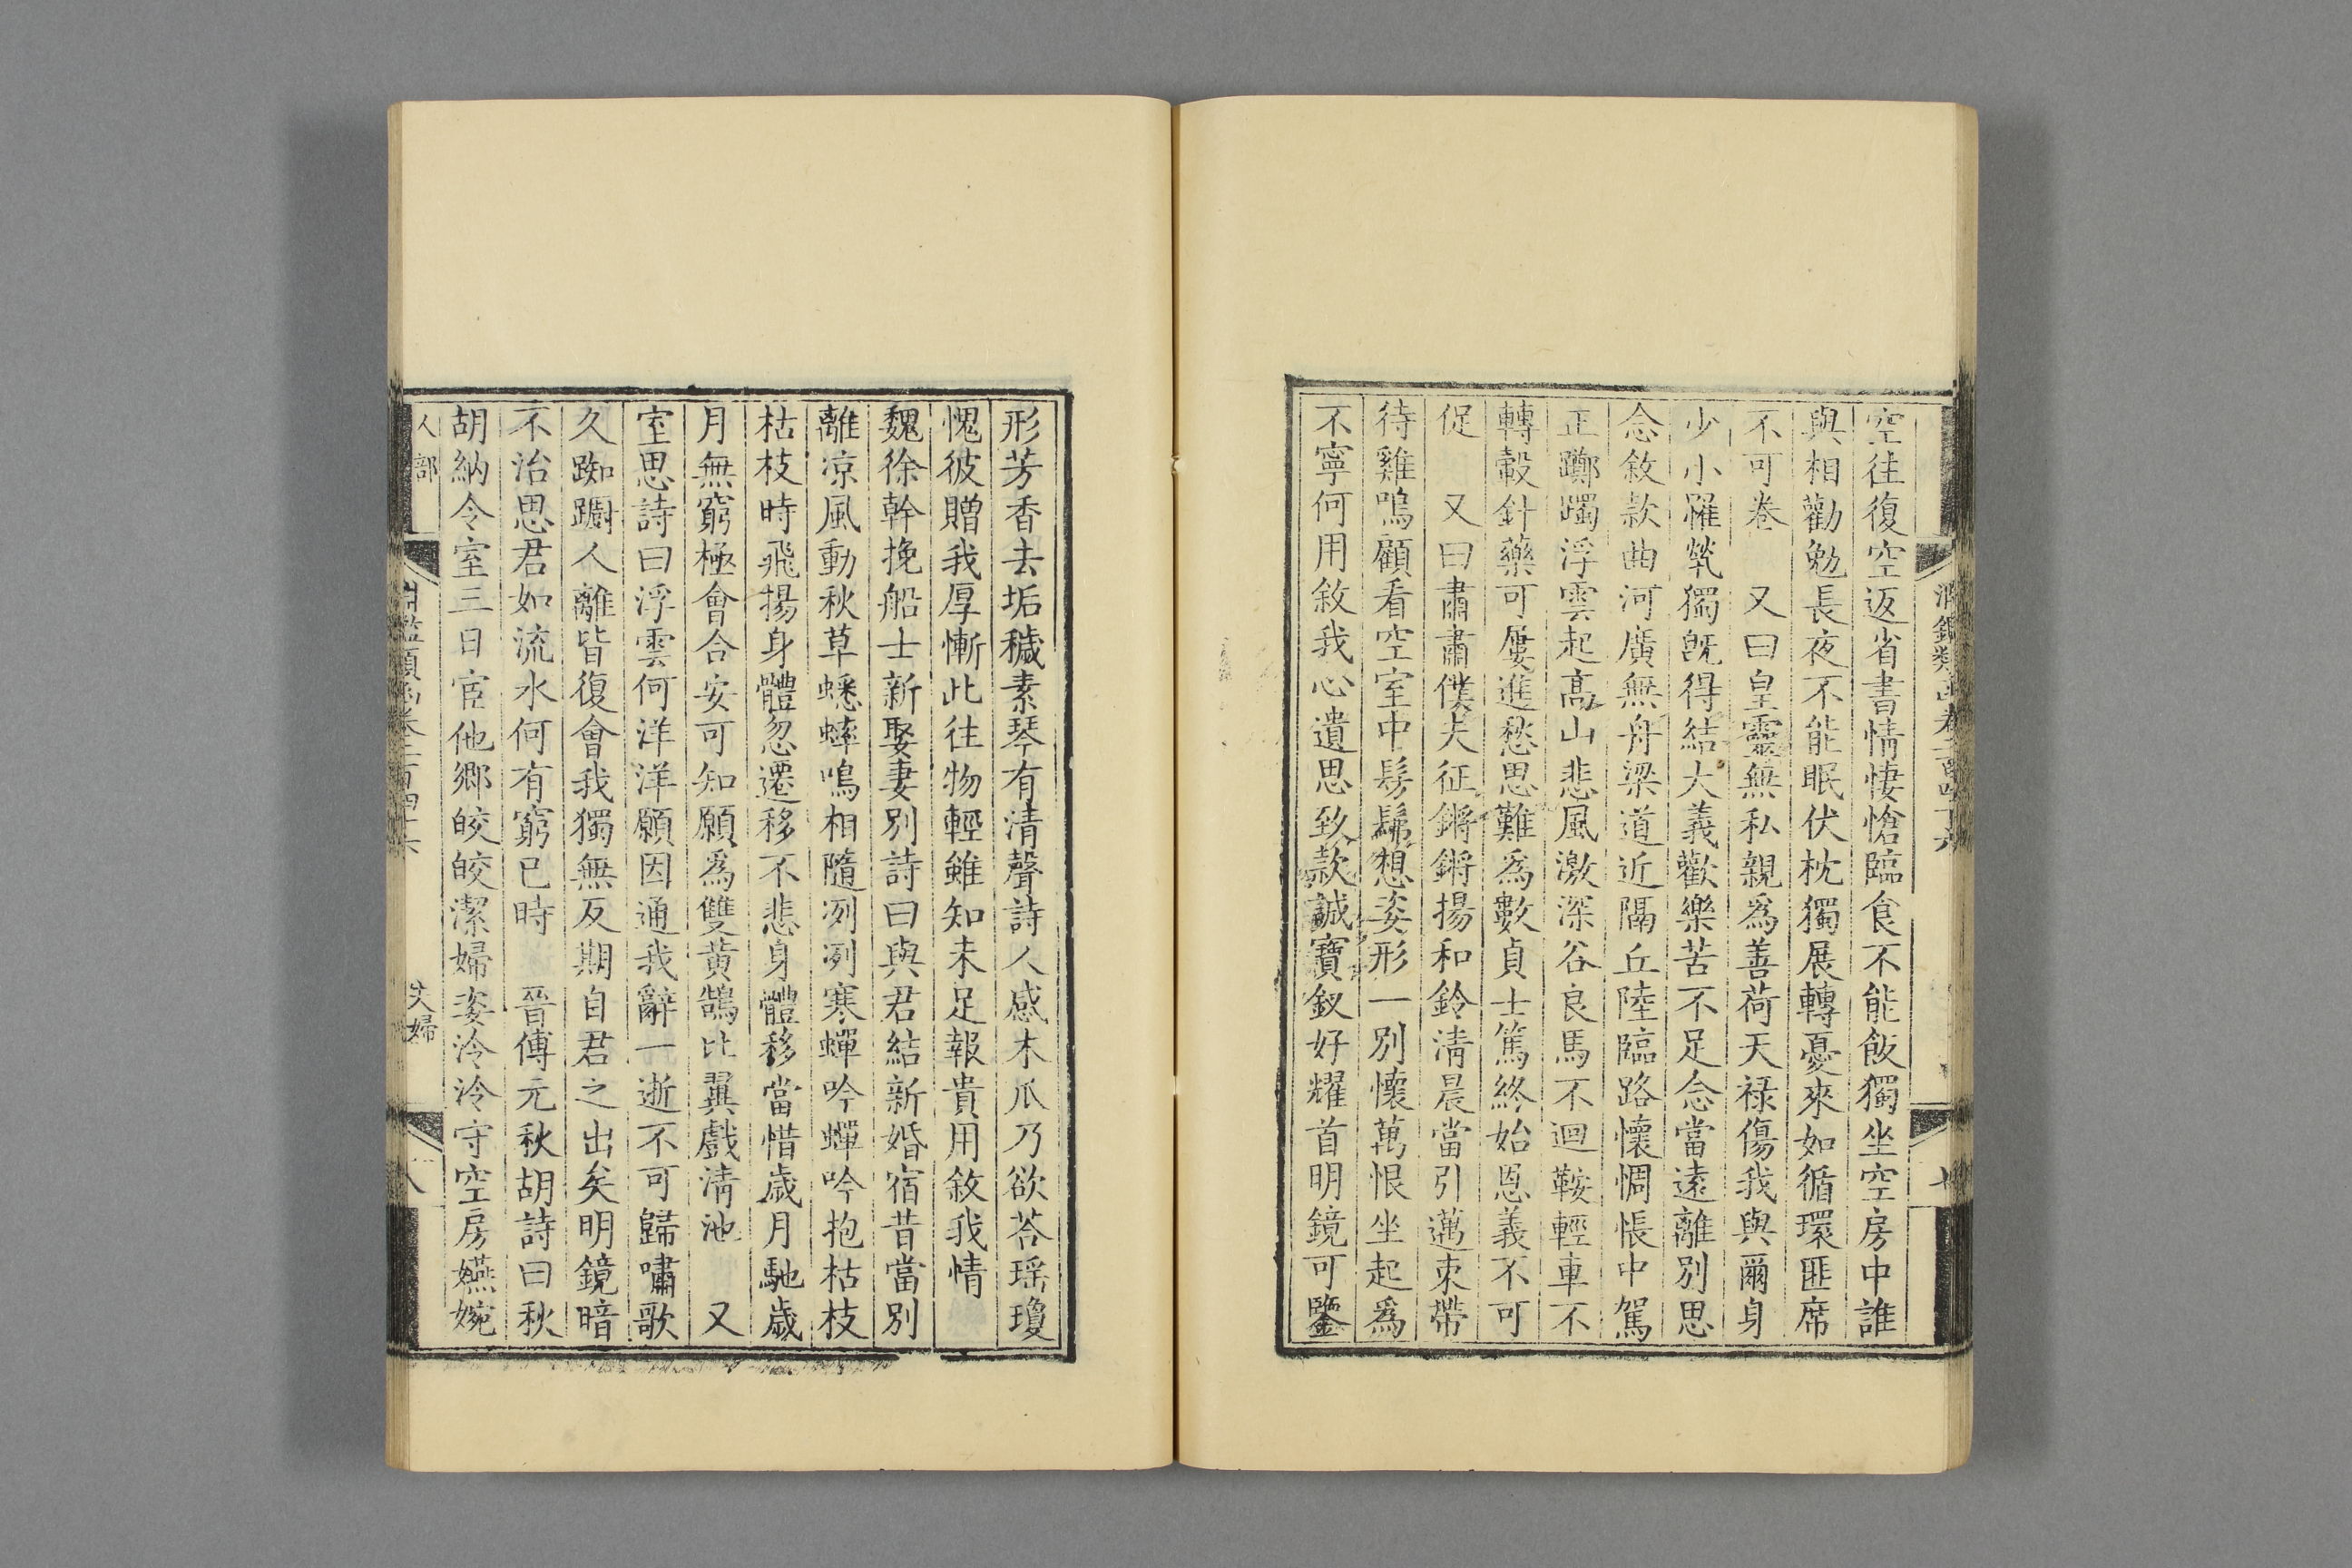 空往復空返省書情悽愴臨食不能飯獨坐空房中誰
與相勸勉長夜不能眠伏枕獨展轉憂來如循環匪席
不可卷　又曰皇靈無私親爲善荷天祿傷我與爾身
少小罹煢獨旣得結大義歡樂苦不足念當遠離別思
念敘款曲河廣無舟梁道近隔丘陸臨路懷惆悵中駕
正躑躅浮雲起高山悲風激深谷良馬不迴鞍輕車不
轉轂針藥可屢進愁思難爲數貞士篤終始恩義不可
促　又曰肅肅僕夫征鏘鏘揚和鈴淸晨當引邁束帶
待雞鳴顧看空室中髣髴想姿形一別懷萬恨坐起爲
不寧何用敘我心遺思致款誠寶釵好耀首明鏡可鑒
形芳香去垢穢素琴有清聲詩人感木瓜乃欲荅瑶瓊
愧彼贈我厚慚此往物輕雖知未足報貴用敘我情
魏徐幹挽船士新娶妻別詩曰與君結新婚宿昔當別
離凉風動秋草蟋蟀鳴相隨冽冽寒蟬吟蟬吟抱枯枝
枯枝時飛揚身體忽遷移不悲身體移當惜歲月馳歲
月無窮極會合安可知願爲雙黃鵠比翼戲淸池　又
室思詩曰浮雲何洋洋願因通我辭一逝不可歸嘯歌
久踟躕人離皆復會我獨無反期自君之出矣明鏡暗
不治思君如流水何有窮已時　晉傅元秋胡詩曰秋
胡納令室三日宦他鄉皎皎潔婦姿泠泠守空房嬿婉
人部
淵鑑類函卷二百四十六
夫婦
八
淵鑑類函卷二百四十六
七